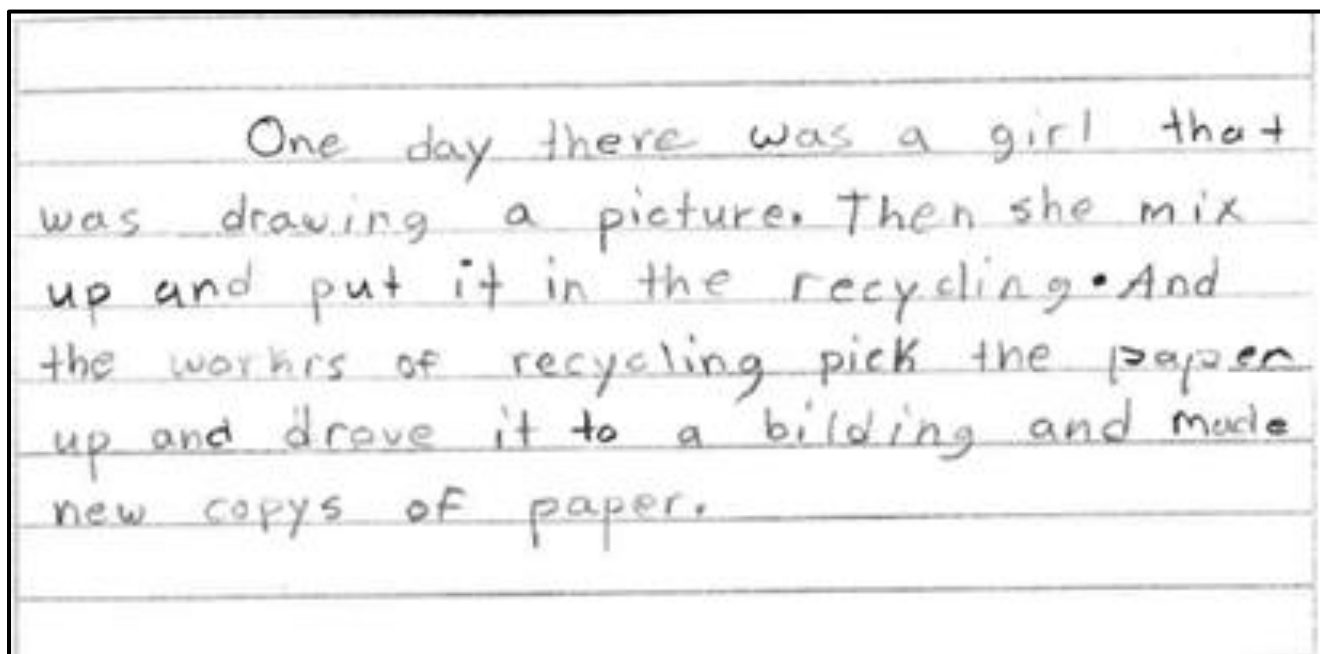 One day there was a girl that
was drawing a picture. Then she mix
up and put it in the recycling. And
the workrs of recycling pick the paper
up and drove it to a bilding and made
new copys of paper.